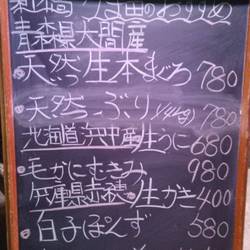 のおすすめ
青森県大間産
天然生本まぐろ 780
天然ぶり 780
北海道浜中産生うに 680
毛かにむきみ 980
兵庫県赤穂生かき 400
白子ぽんず 580